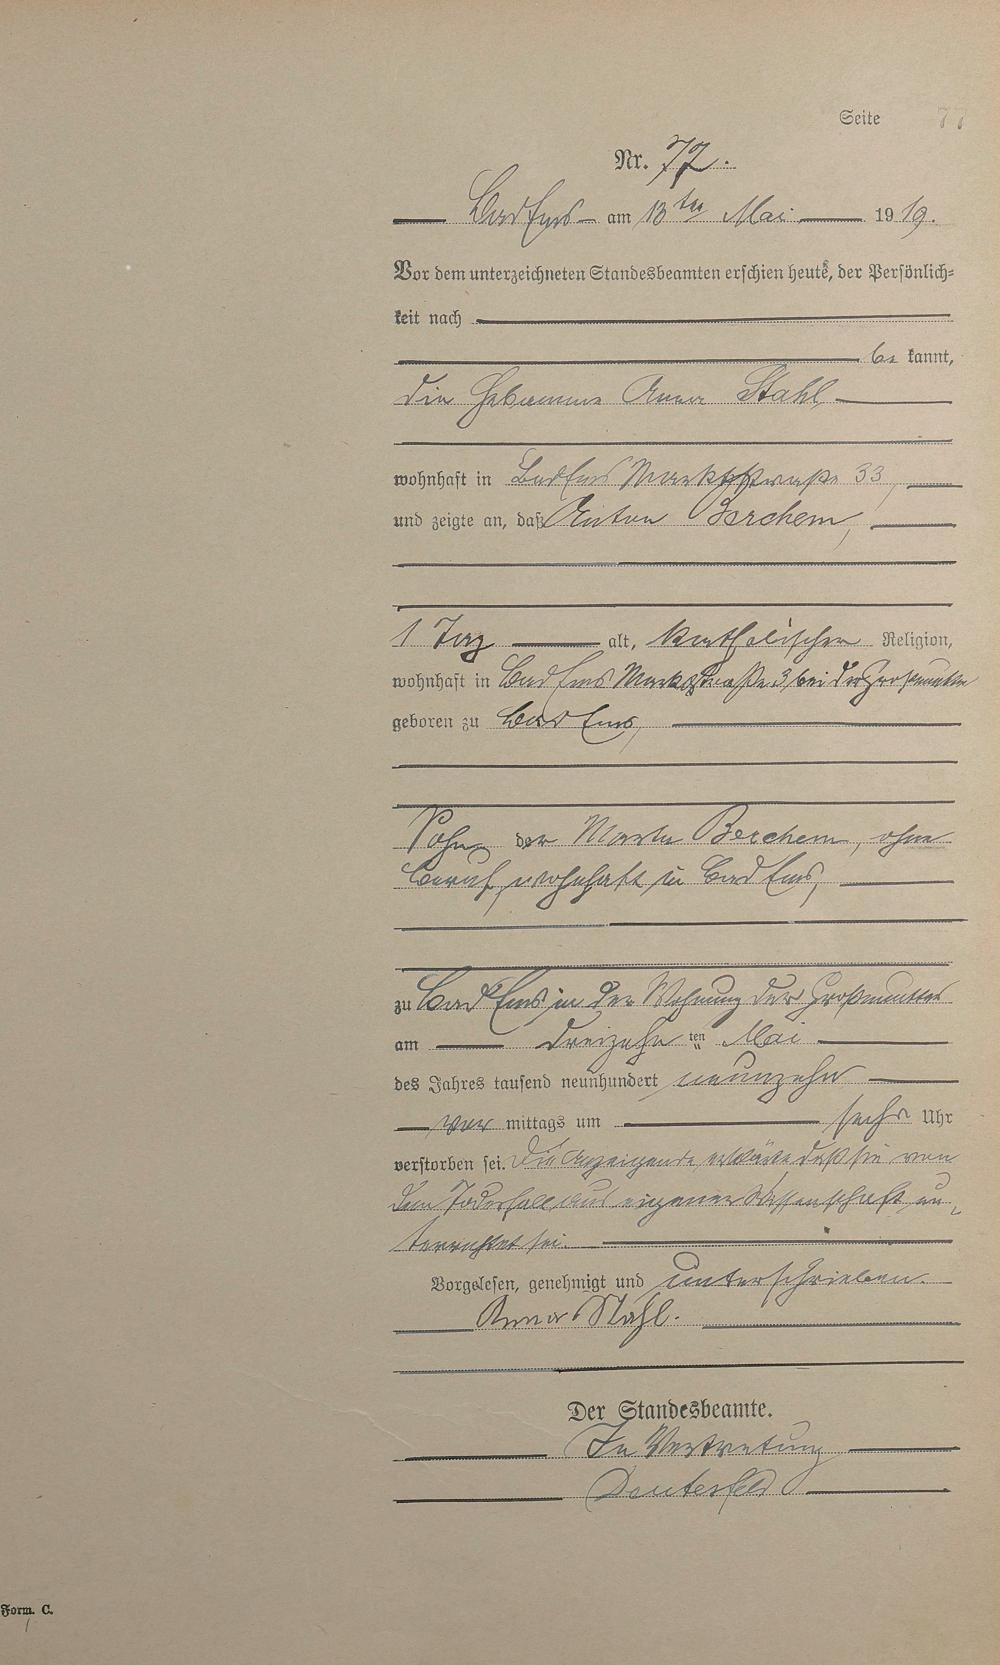 Seite 77
Nr. 77.
Bad Ems am 13ten Mai 1919.
Vor dem unterzeichneten Standesbeamten erschien heute, der Persönlich-
keit nach
be kannt,
die Hebamme Anna Stahl
wohnhaft in Bad Ems Marktstraße 33,
und zeigte an, daß Anton Berchem,
1 Tag alt, katholischer Religion,
wohnhaft in Bad Ems Marktstraße 3, bei der Großmutter
geboren zu Bad Ems,
Sohn der Maria Berchem, ohne
Beruf, wohnhaft in Bad Ems,
zu Bad Ems in der Wohnung der Großmutter
am dreizehnten Mai
des Jahres tausend neunhundert neunzehn
vor mittags um sechs Uhr
verstorben sei. Die Anzeigende erklärte daß sie von
dem Todesfall aus eigener Wissenschaft un-
terrichtet sei.
Vorgelesen, genehmigt und unterschrieben.
Anna Stahl.
Der Standesbeamte.
In Vertretung
Form. C.